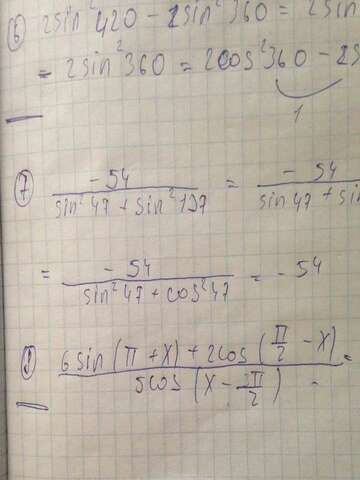 ⑥ 2sin²420 - 2sin²360 = 2sin
= 2sin²360 = 2cos²360 - 2s
1
⑦ -54 / (sin²47 + sin²137) = - 54 / (sin47 + sin
= -54 / (sin²47 + cos²47) = - 54
(6sin(π + x) + 2cos(π/2 - x)) / (5cos(x - π/2)) =